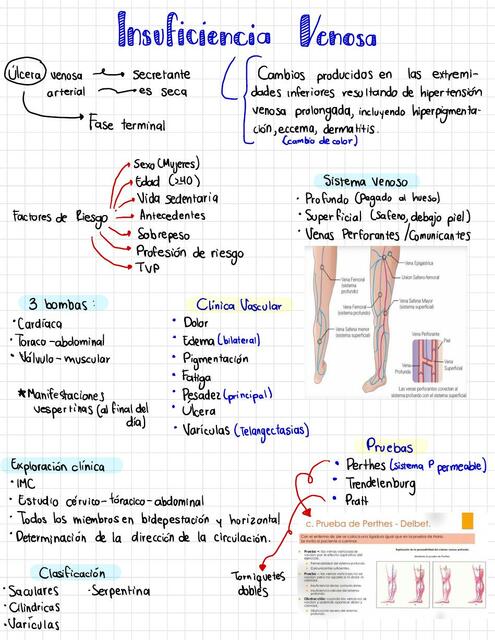 Insuficiencia Venosa
Úlcera venosa → Secretante
arterial → es seca
Fase terminal
Cambios producidos en las extremi-
dades inferiores resultando de hipertensión
venosa prolongada, incluyendo hiperpigmenta-
ción, eccema, dermatitis.
(cambio de color)
Factores de Riesgo
Sexo (Mujeres)
Edad (>40)
Vida sedentaria
Antecedentes
Sobrepeso
Profesión de riesgo
TVP
Sistema venoso
• Profundo (Pagado al hueso)
• Superficial (Safeno, debajo piel)
• Venas Perforantes /Comunicantes
Vena Epigástrica
Unión Safeno-femoral
Vena Femoral
(sistema
profundo)
Vena Femoral
(sistema profundo)
Vena Safena Mayor
(sistema superficial)
Vena Safena menor
(sistema superficial)
Vena Perforante
Piel
Vena
Profunda
Vena
Superficial
Las venas perforantes conectan al
sistema profundo con el sistema superficial
3 bombas:
• Cardíaca
• Toraco-abdominal
• Válvulo-muscular
★Manifestaciones
vespertinas (al final del
día)
Clínica Vascular
• Dolor
• Edema (bilateral)
• Pigmentación
• Fatiga
• Pesadez (principal)
• Úlcera
• Varículas (Telangectasias)
Exploración clínica
• IMC
• Estudio cérvico-tóracico-abdominal
• Todos los miembros en bidepestación y horizontal
• Determinación de la dirección de la circulación.
Pruebas
• Perthes (sistema P permeable)
• Trendelenburg
• Pratt
Torniquetes
dobles
c. Prueba de Perthes - Delbet.
Clasificación
• Saculares
• Serpentina
• Cilíndricas
• Varículas